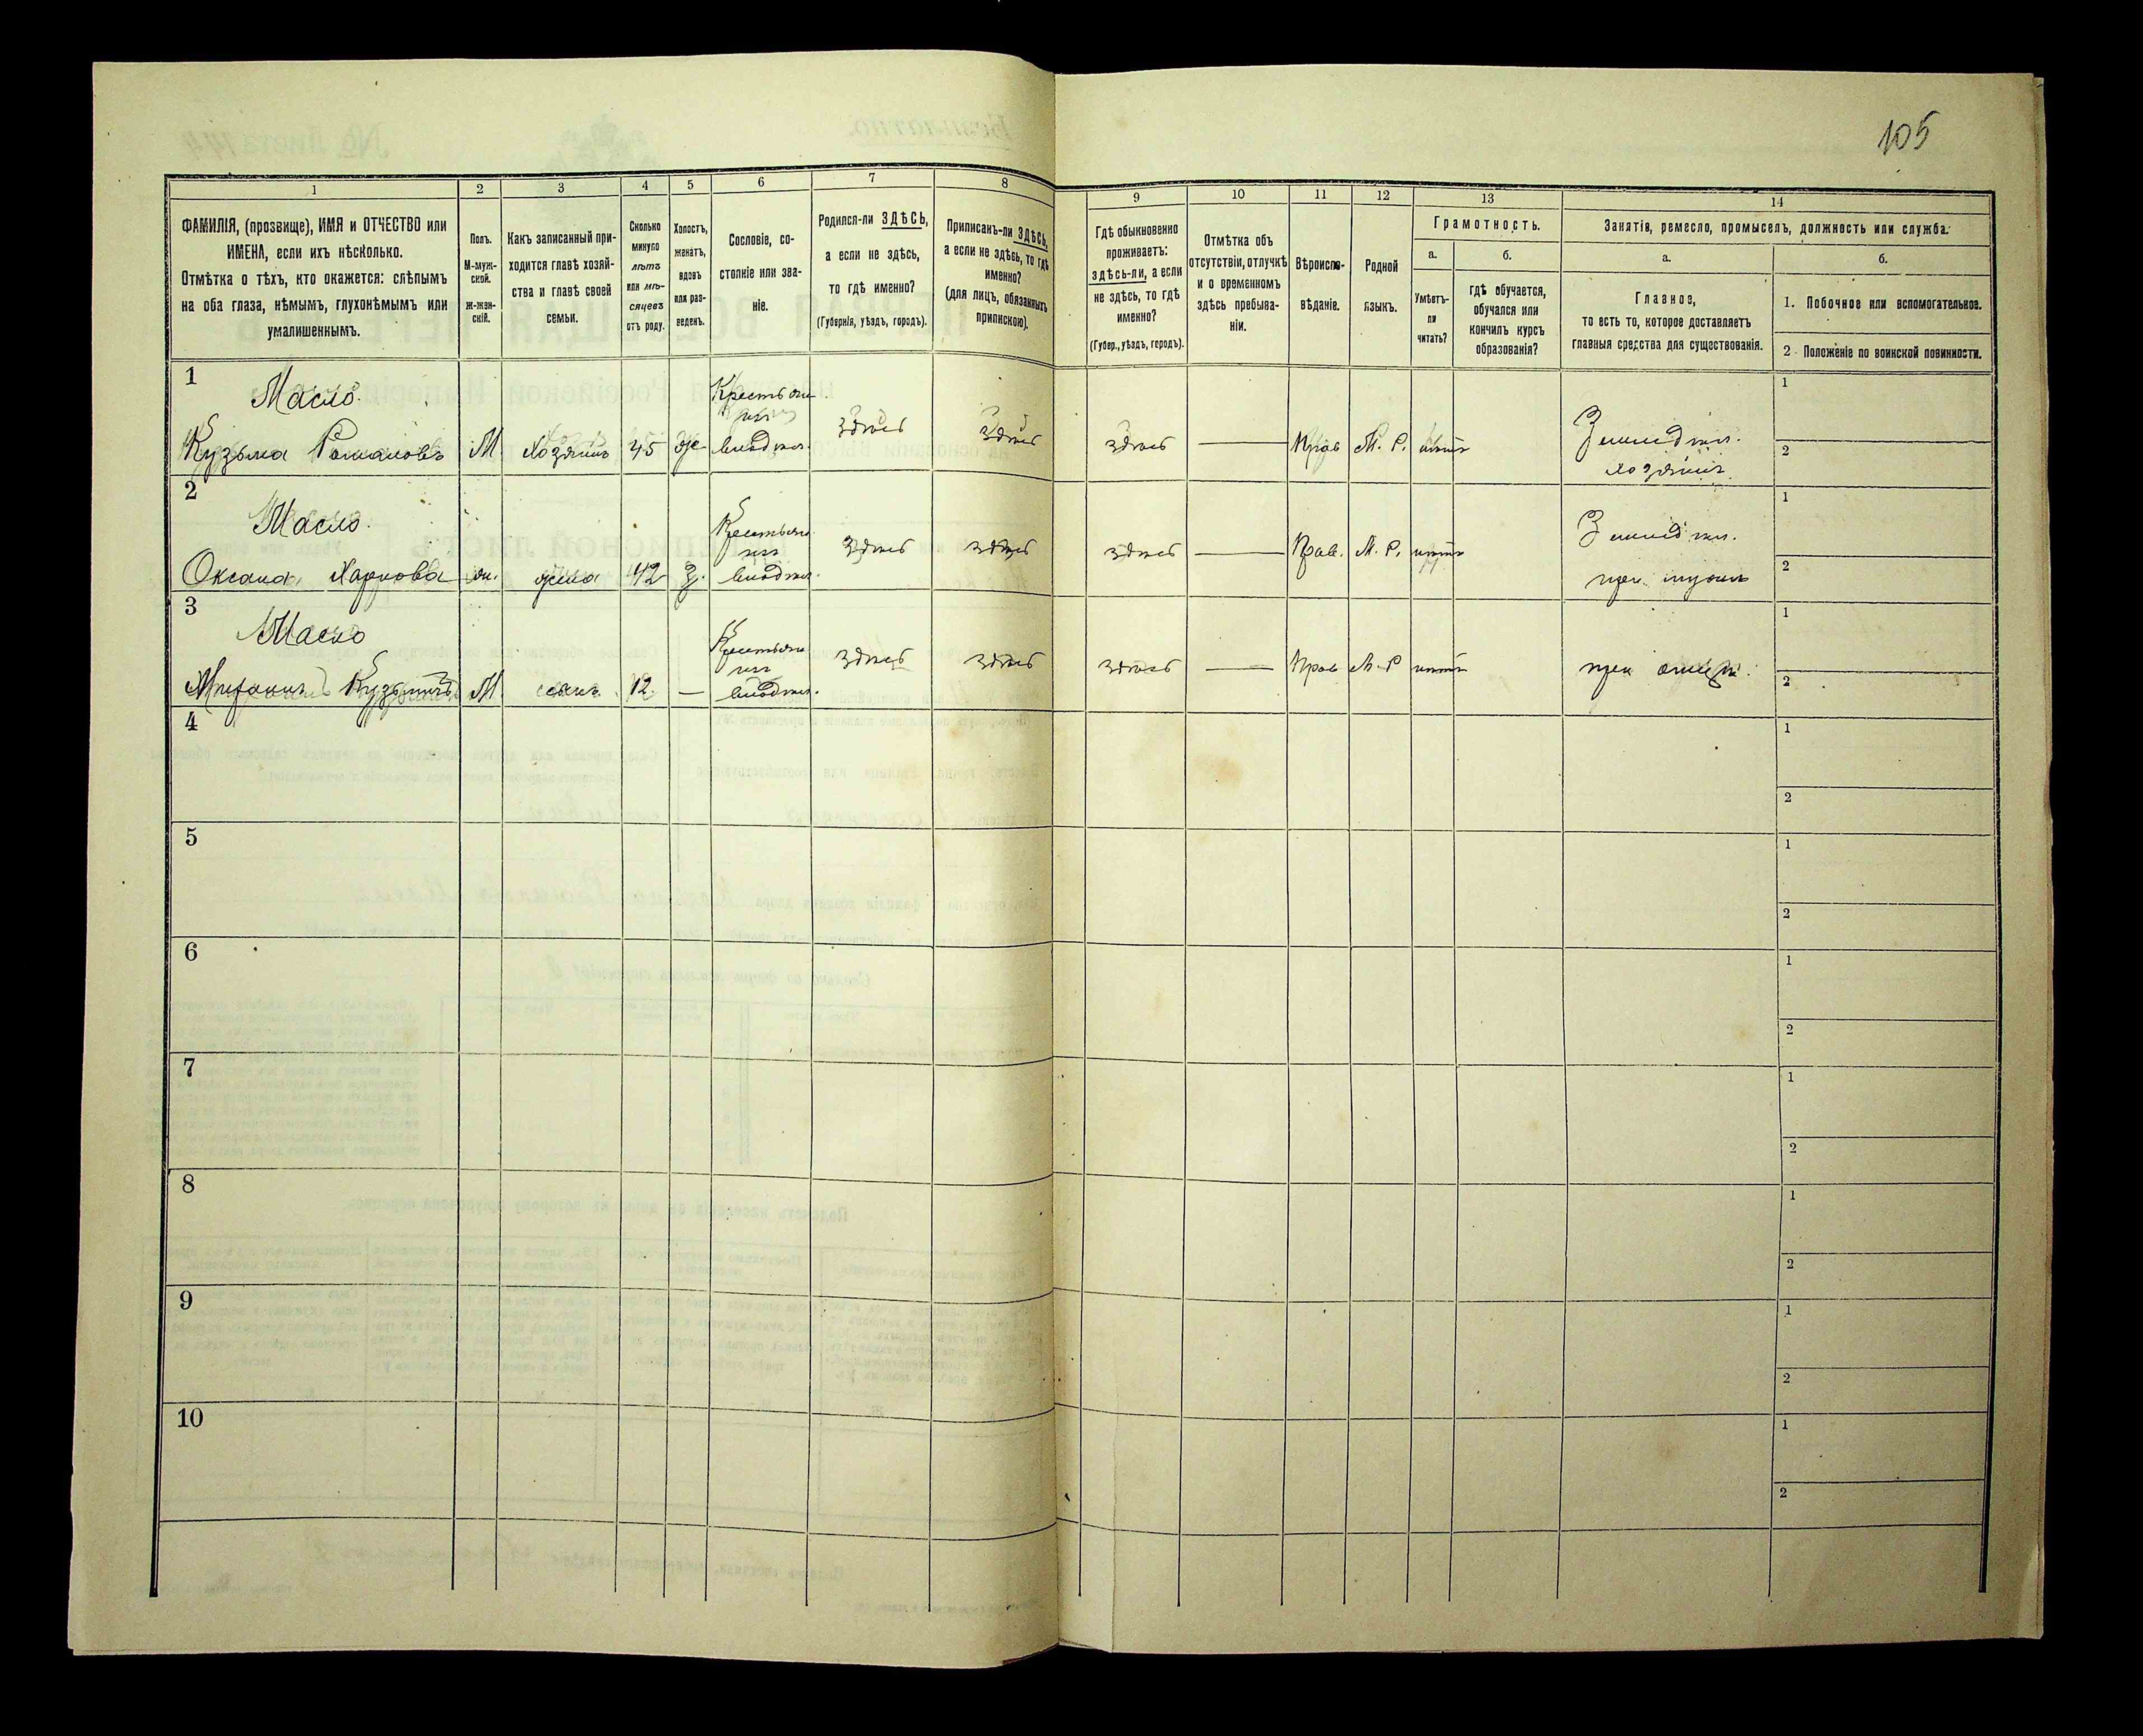 105
1
2
3
4
5
6
7
8
9
10
11
12
13
14
ФАМИЛІЯ, (прозвище), ИМЯ и ОТЧЕСТВО или
ИМЕНА, если ихъ нѣсколько.
Отмѣтка о тѣхъ, кто окажется: слѣпымъ
на оба глаза, нѣмымъ, глухонѣмымъ или
умалишеннымъ.
Полъ.
М-муж-
ской.
ж-жен-
скій.
Какъ записанный при-
ходится главѣ хозяй-
ства и главѣ своей
семьи.
Сколько
минуло
лѣтъ
или мѣ-
сяцевъ
отъ роду.
Холостъ,
женатъ,
вдовъ
или раз-
веденъ.
Сословіе, со-
стояніе или зва-
ніе.
Родился-ли ЗДѢСЬ,
а если не здѣсь,
то гдѣ именно?
(Губернія, уѣздъ, городъ).
Приписанъ-ли ЗДѢСЬ,
а если не здѣсь, то гдѣ
именно?
(для лицъ, обязанныхъ
припискою).
Гдѣ обыкновенно
проживаетъ:
здѣсь-ли, а если
не здѣсь, то гдѣ
именно?
(Губер., уѣздъ, городъ).
Отмѣтка объ
отсутствіи, отлучкѣ
и о временномъ
здѣсь пребыва-
ніи.
Вѣроиспо-
вѣданіе.
Родной
языкъ.
Грамотность.
а.
б.
Умѣетъ-
ли
читать?
гдѣ обучается,
обучался или
кончилъ курсъ
образованія?
Занятія, ремесло, промыселъ, должность или служба.
а.
б.
Главное,
то есть то, которое доставляетъ
главныя средства для существованія.
1. Побочное или вспомогательное.
2. Положеніе по воинской повинности.
1
Масло.
Кузьма Романовъ
М
Хозяинъ
45
же
Крестьянинъ
владѣл.
здѣсь
здѣсь
здѣсь
Прав
М. Р.
нѣтъ
Земледѣл.
хозяинъ
1
2
2
Масло.
Оксана Карпова
ж.
жена
42
з.
Крестьянинъ
владѣл.
здѣсь
здѣсь
здѣсь
Прав.
М. Р.
нѣтъ
Земледѣл.
при мужѣ
1
2
3
Масло
Кузьмичъ
М
сынъ
12
Крестьянинъ
владѣл.
здѣсь
здѣсь
здѣсь
Прав
М. Р
нѣтъ
при отцѣ.
1
2
4
1
2
5
1
2
6
1
2
7
1
2
8
1
2
9
1
2
10
1
2